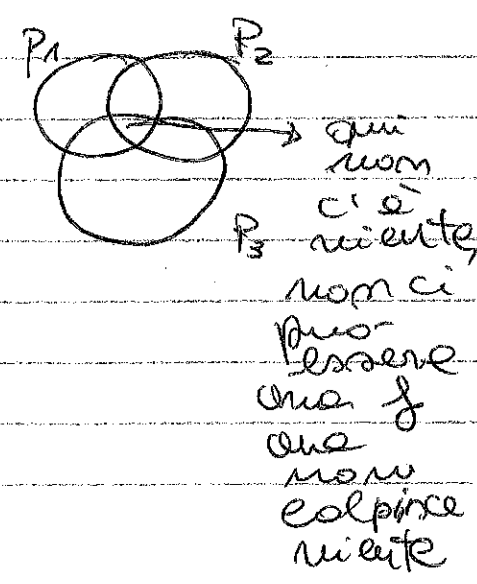 P1 P2
qui
non
c'è
P3 niente,
non ci
può
essere
una f
che
non
colpisce
niente